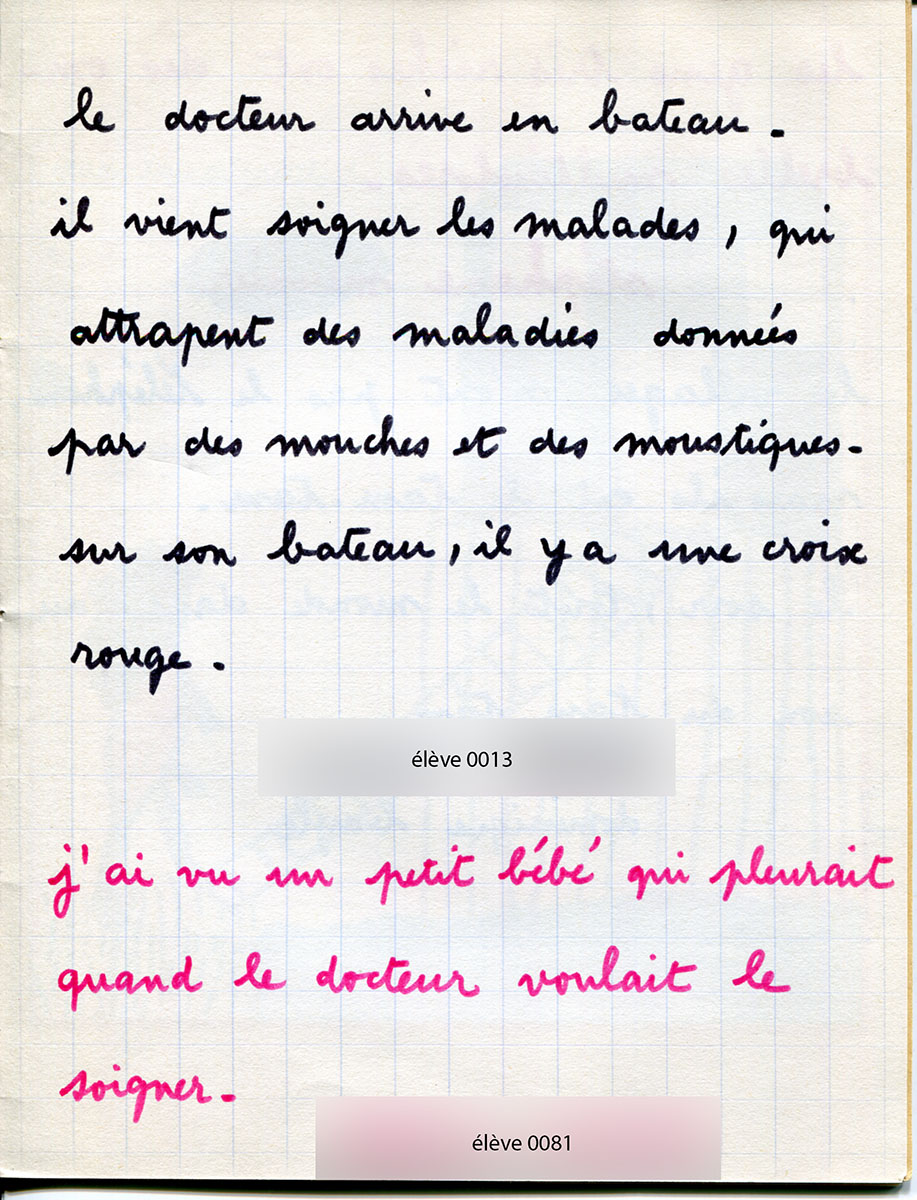 le docteur arrive en bateau.
il vient soigner les malades, qui
attrapent des maladies données
par des mouches et des moustiques.
sur son bateau, il y a une croix
rouge.
élève 0013
j'ai vu un petit bébé qui pleurait
quand le docteur voulait le
soigner.
élève 0081